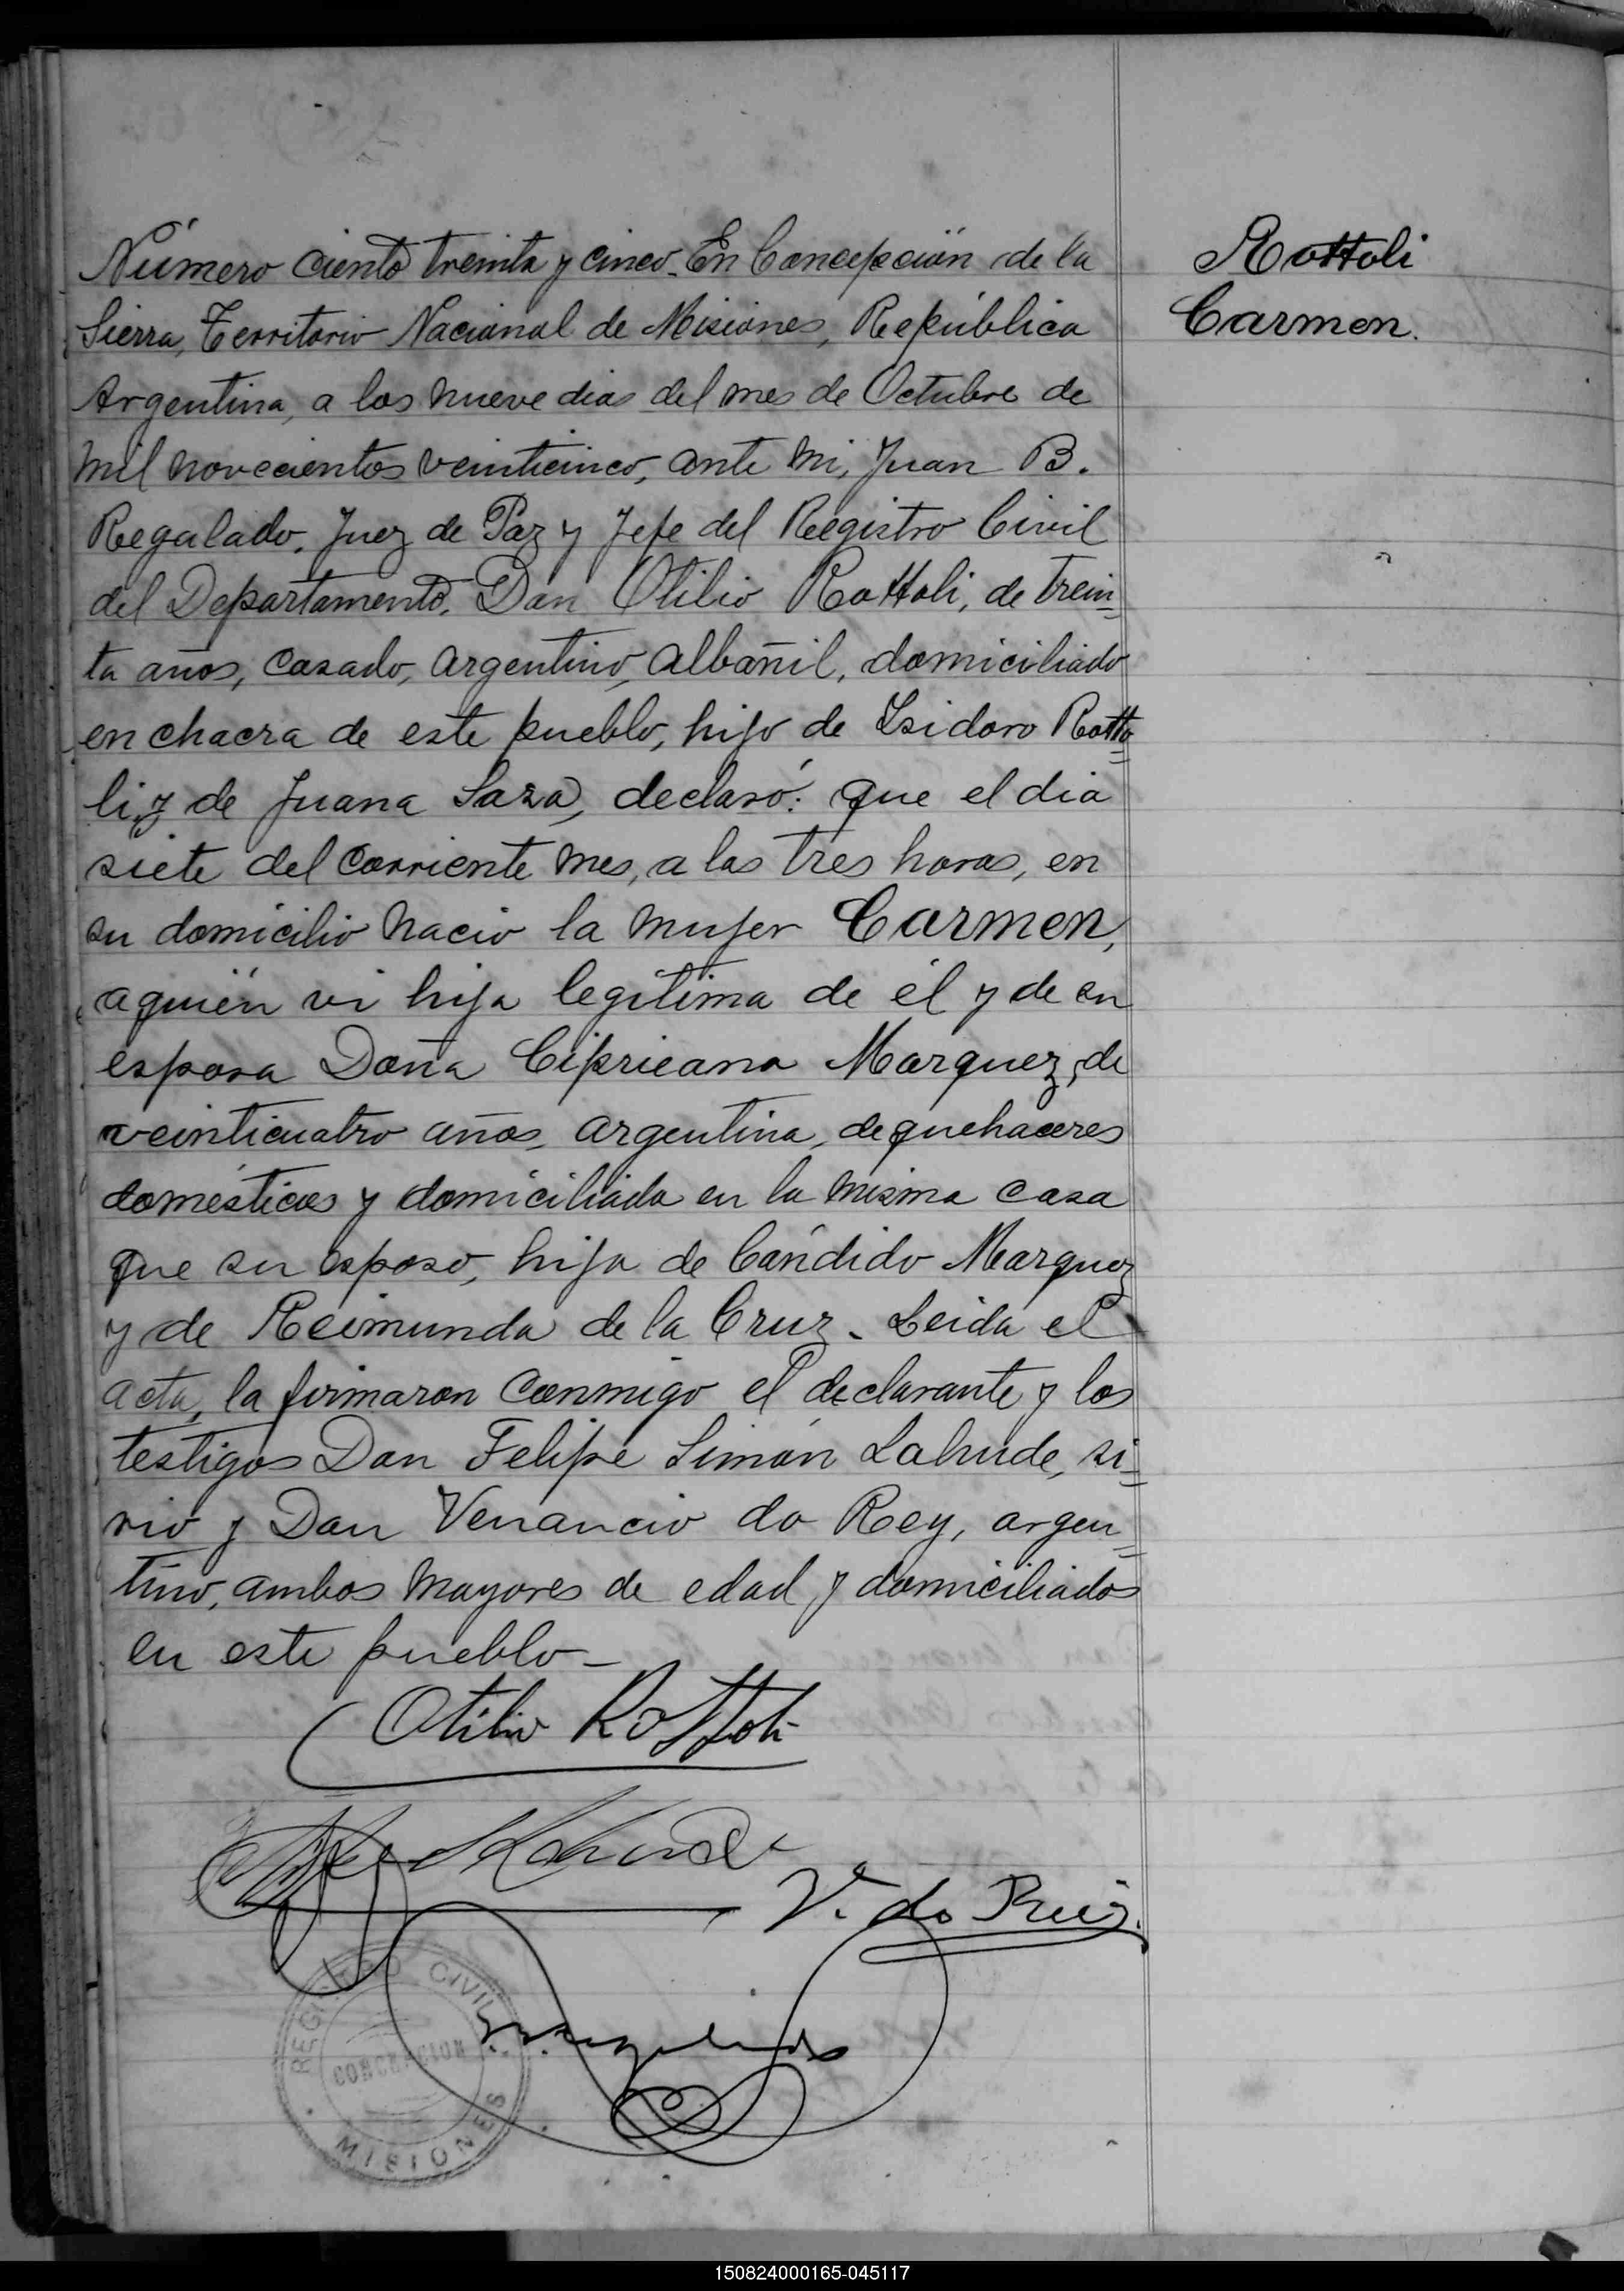 Número ciento treinta y cinco. En Concepción de la
Sierra, Territorio Nacional de Misiones, República
Argentina, a los nueve dias del mes de Octubre de
mil novecientos veinticinco, ante mi, Juan B.
Regalado, Juez de Paz y Jefe del Registro Civil
del Departamento, Don Otilio Rottoli, de trein-
ta años, casado, argentino, albañil, domiciliado
en chacra de este pueblo, hijo de Isidoro Rotto-
li y de Juana Saza, declaró: que el dia
siete del corriente mes, a las tres horas, en
su domicilio nacio la mujer Carmen,
a quién vi hija legítima de él y de su
esposa Doña Cipriana Marquez, de
veinticuatro años, argentina, de quehaceres
domésticos y domiciliada en la misma casa
que su esposo, hija de Cándido Marquez
y de Reimunda de la Cruz. Leida el
acta, la firmaron conmigo el declarante y los
testigos Don Felipe Simón Lahude, si-
rio y Don Venancio do Rey, argen-
tino, ambos mayores de edad y domiciliados
en este pueblo-
Otilio Rottoli
V. do Reis.
REGISTRO CIVIL
CONCEPCION
MISIONES
Rottoli
Carmen.
150824000165-045117